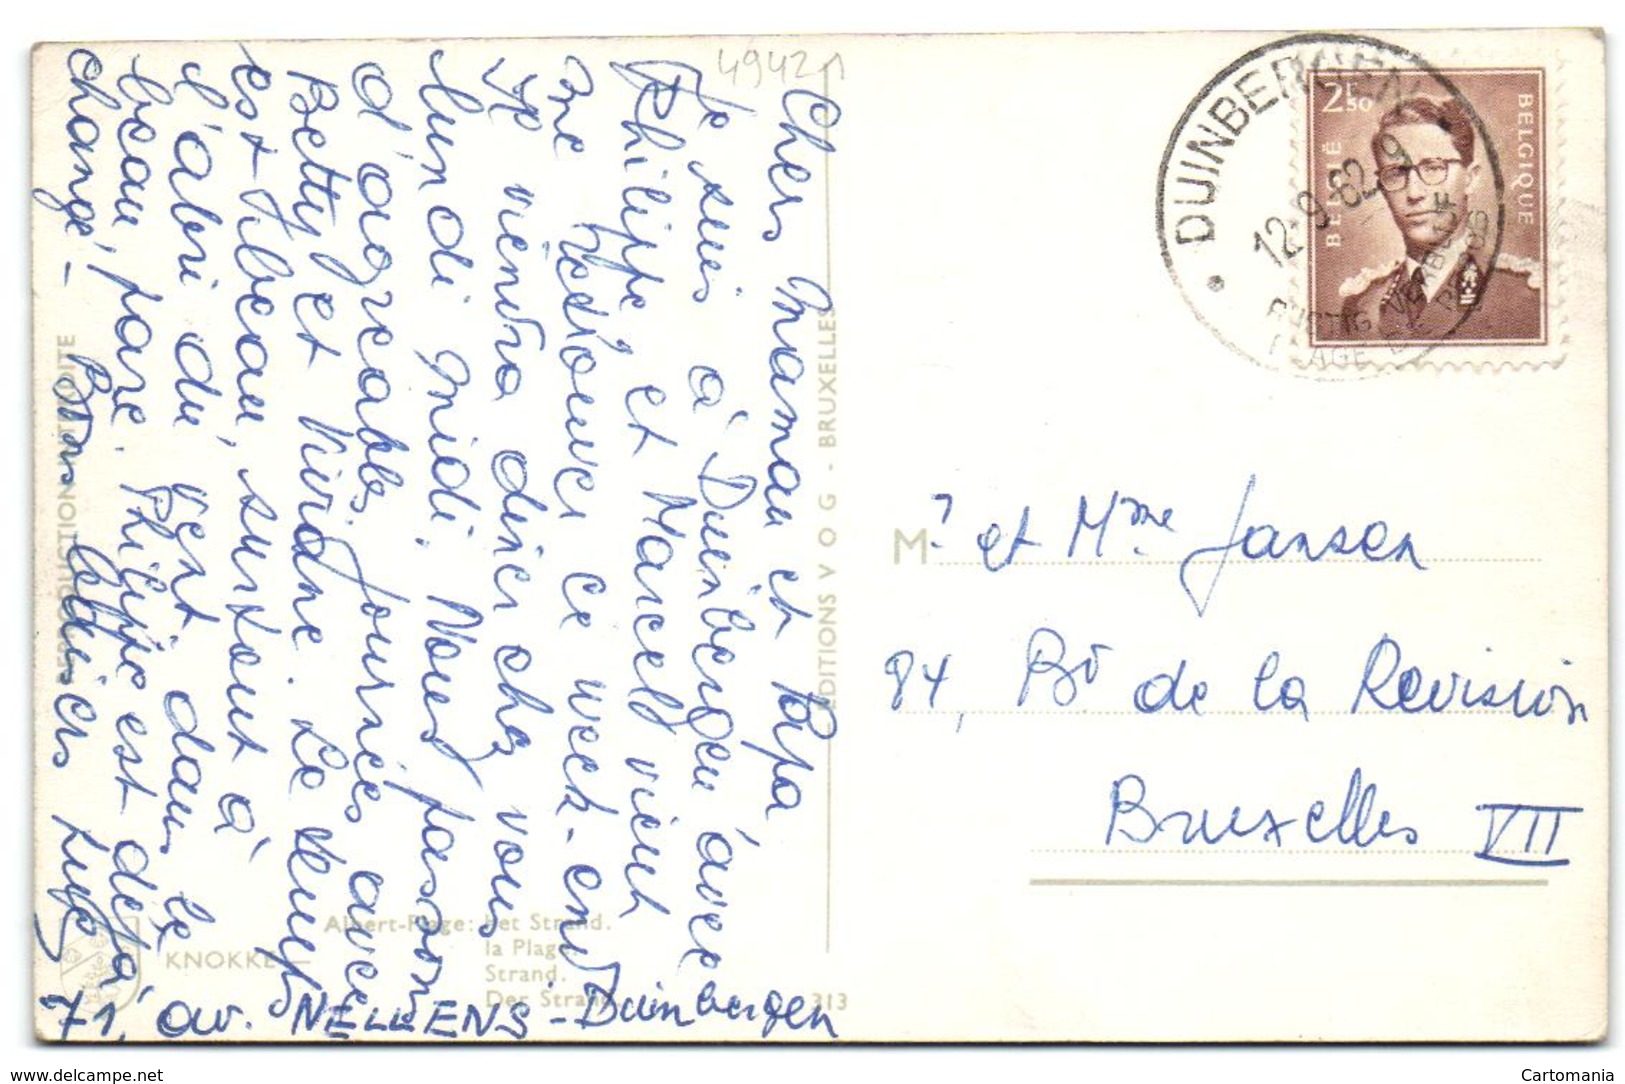 4942
Chers Maman et Papa
Je suis à Duinbergen avec
Philippe, et Marcel vient
me retrouver ce week-end
Je viendra dîner chez vous
lundi midi. Nous passons
d'agréables journées avec
Betty et Viviane. Le temps
est + beau, surtout à
l'abri du vent dans le
beau parc. Philippe est déjà
changé. -
Bons baisers
71, av. NELLENS - Duinbergen
REPRODUCTION INTERDITE
EDITIONS VOG - BRUXELLES
KNOKKE —
Albert-Plage: het Strand.
la Plage.
Strand.
Der Strand.
313
DUINBERGEN
12-9-62 9
RUSTIG
PLAGE
2F50
BELGIË
BELGIQUE
Mr et Mme Jansen
84, Bd de la Revision
Bruxelles VII
Cartomania
www.delcampe.net